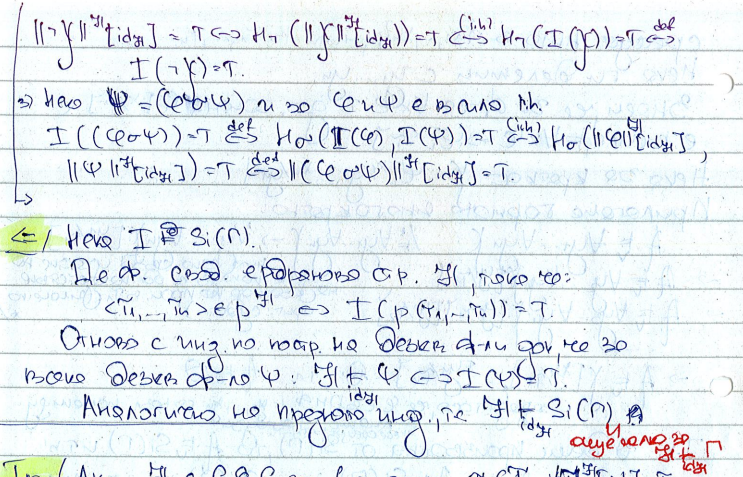 ||¬χ||^ℋ[id_ℋ] = T ⇔ H¬(||χ||^ℋ[id_ℋ]) = T ⇔(i.h.) H¬(I(χ)) = T ⇔def
I(¬χ) = T.
3) Нека Ψ = (φσψ) и за φ и ψ е в сила i.h.
I((φσψ)) = T ⇔def Hσ(I(φ), I(ψ)) = T ⇔(i.h.) Hσ(||φ||^ℋ[id_ℋ],
||ψ||^ℋ[id_ℋ]) = T ⇔def ||(φσψ)||^ℋ[id_ℋ] = T.
⇐/ Нека I ⊨ Si(Γ).
Деф. своб. ербранова стр. ℋ, така че:
<τ1,...,τn> ∈ p^ℋ ⇔ I(p(τ1,...,τn)) = T.
Отново с инд. по постр. на безкв. ф-ли док., че за
всяка безкв. ф-ла Ψ: ℋ ⊨_{id_ℋ} Ψ ⇔ I(Ψ) = T.
Аналогично на предната инд., те ℋ ⊨_{id_ℋ} Si(Γ)
и
ℋ ⊨_{id_ℋ} Γ